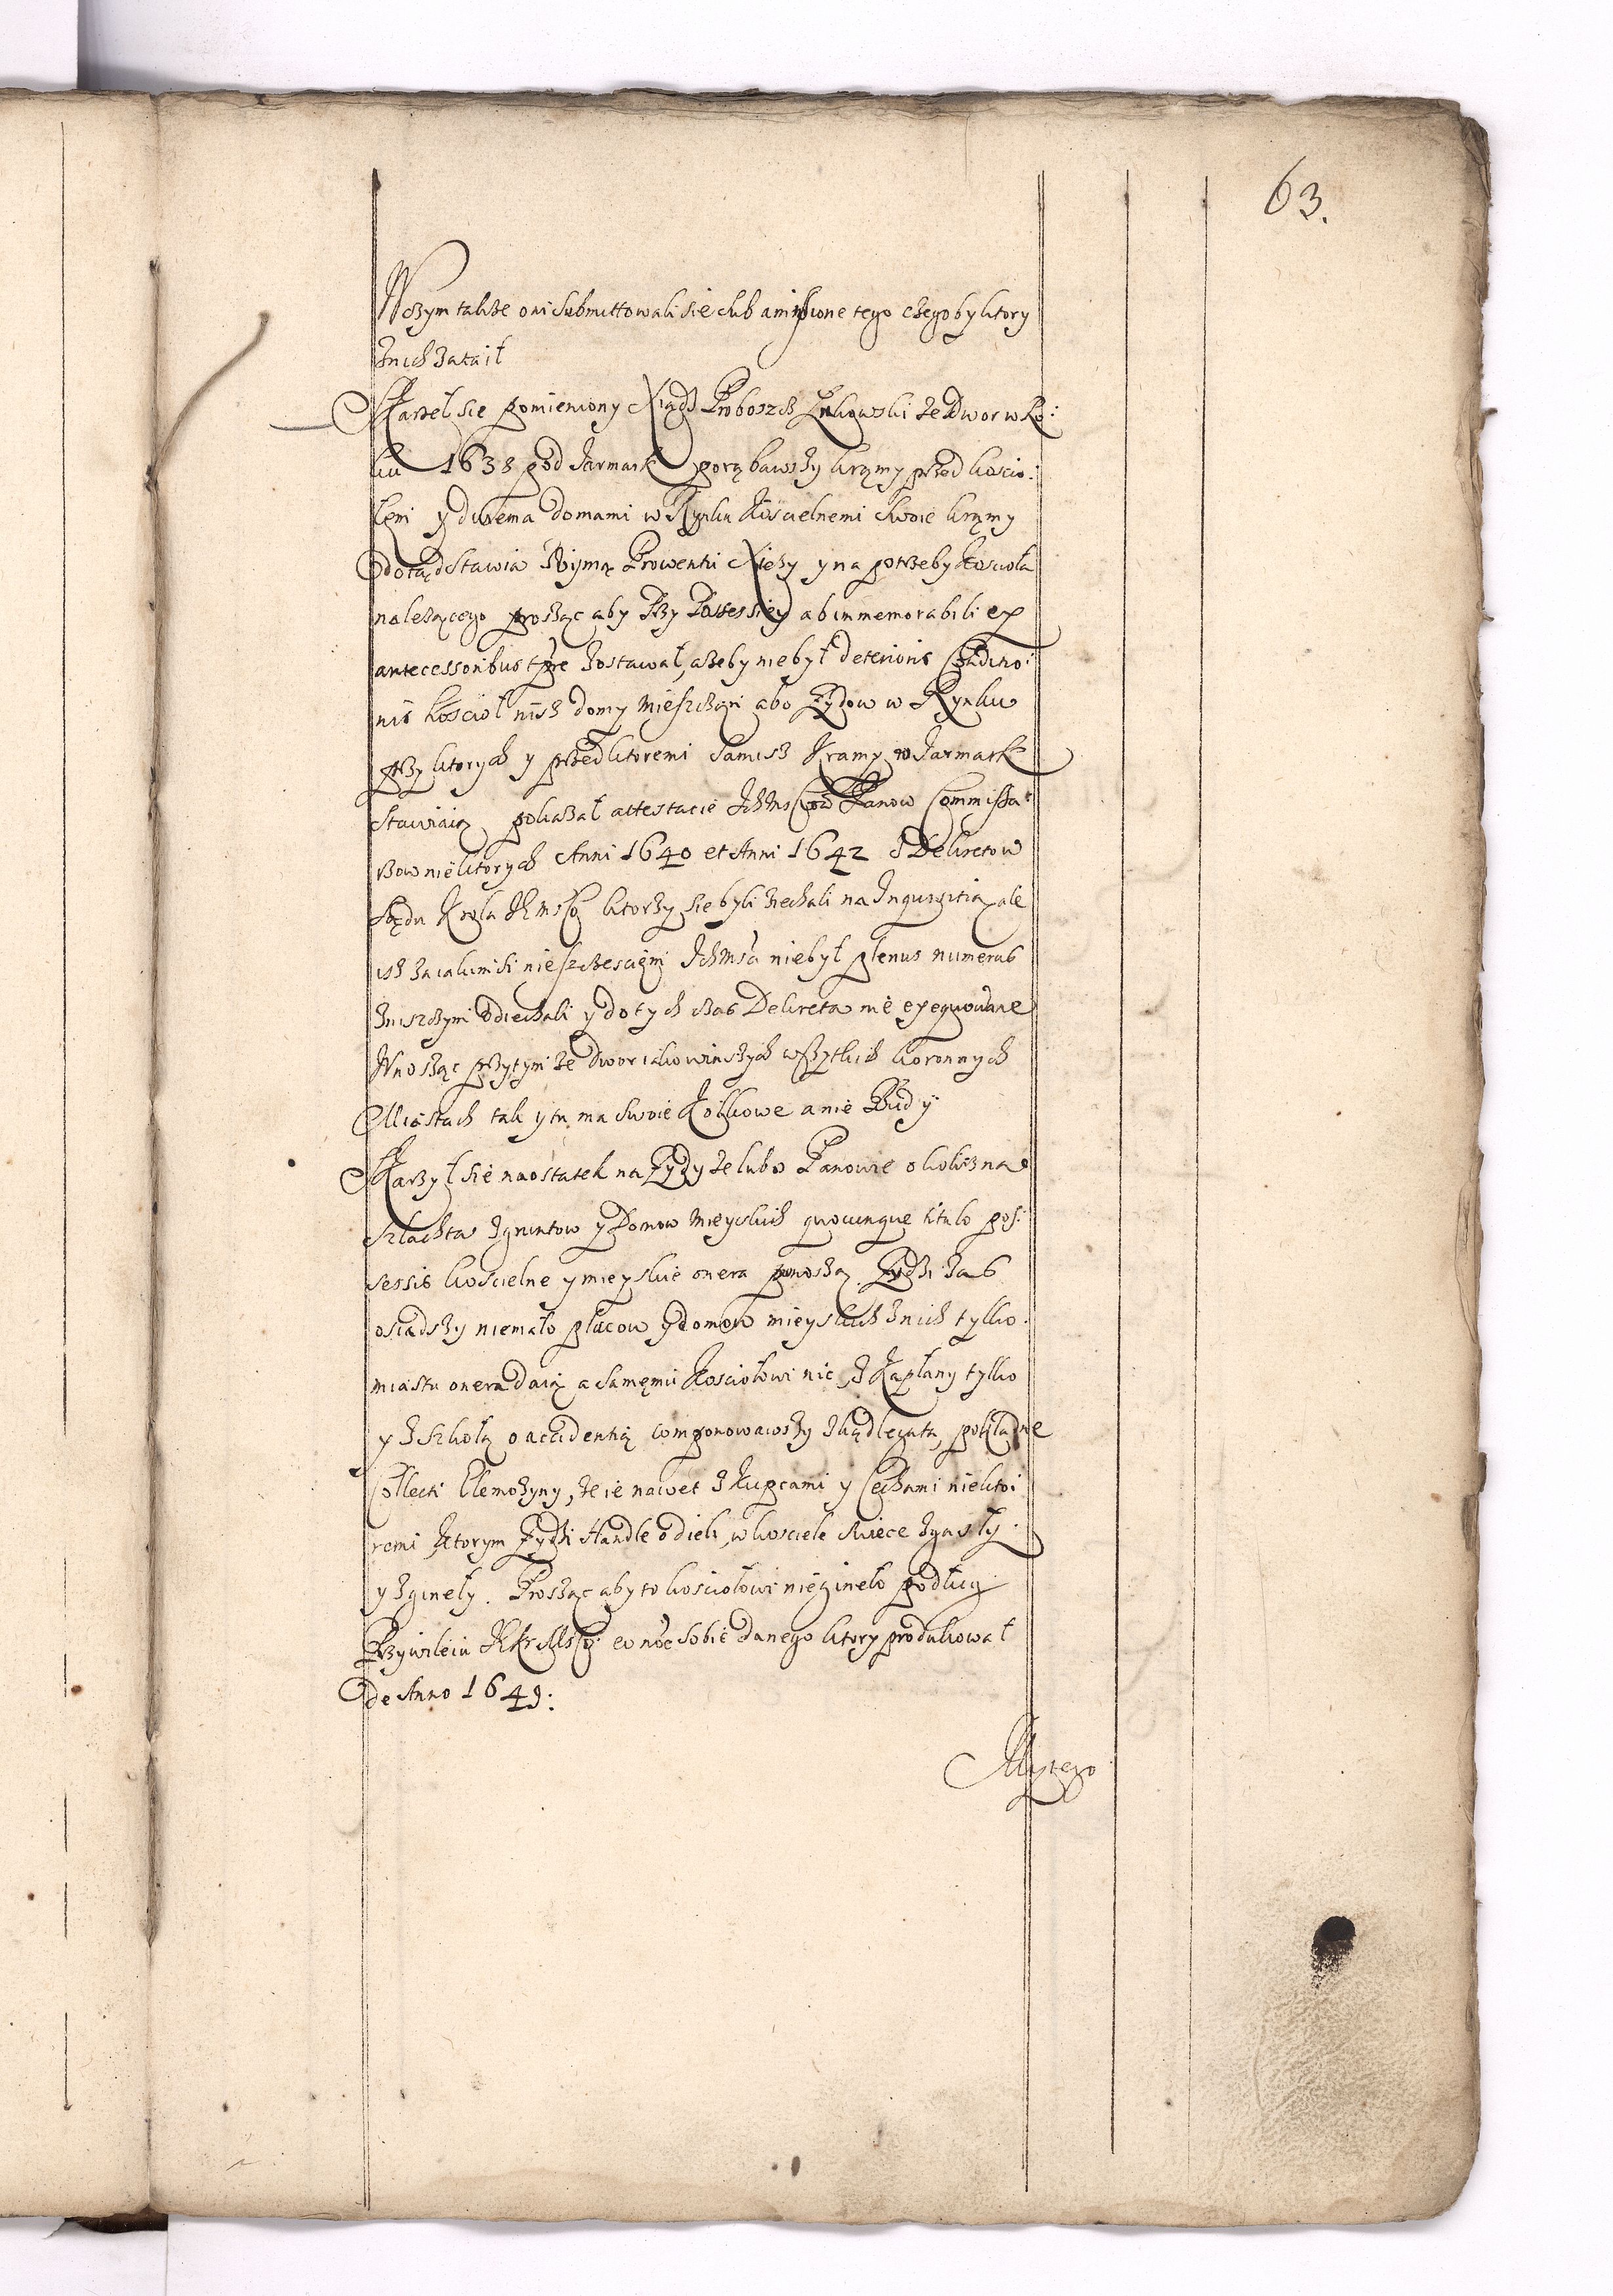 63.
W czym takze oni submittowali się sub amissione tego czegoby ktory
z nich zataił
Skarzeł się pomieniony Xiądz Proboszcz Łukowski ze Dwor w Ro:
ku 1638 pod Jarmark porąbawszy kramy przed koscio:
łem y dwiema domami w Rynku Koscielnemi swoie kramy
dotąd stawia Uymą Prowentu Xięzy y na potrzeby Koscioła
nalezącego prosząc aby przy Possessiey ab immemorabili ex
antecessoribus zostawał, azeby nie był deterioris Conditio:
nis koscioł nisz domy Mieszczan abo Zydow w Rynku
przy ktorych y przed ktoremi samisz Kramy w Jarmark
stawiaią pokazał attestacie Ich Msciow Panow Commissa:
rzow niektorych Anni 1640 et Anni 1642 z Dekretow
Sądu Krola Je Msci ktorzy się byli ziechali na Inquisitią ale
isz za iakimsi nieszczesciem Ich Msci nie był plenus numerus
z niszczym odiechali y do tych czas Dekreta nie exequowane
Wnosząc przytym ze Dwor iako w inszych wszytkich koronnych
Miastach tak y tu ma swoie Kotkowe a nie Budy
Skarzył się naostatek na Zydy ze lubo Panowie okoliczna
szlachta z gruntow y Domow Mieyskich quocunque titulo pos:
sessis koscielne y mieyskie onera ponoszą. Zydzi zas
osiadszy niemało placow y domow mieyskich z nich tylko
miastu onera daią a samemu Kosciołowi nic, z Kapłany tylko
y z Szkołą o accidentią componowawszy zkąd legata, pokładne
Collecti Elemozyny, ze ie nawet z Kupcami y Cechami niekto:
remi ktorym Zydzi Handle odieli, w kosciele swiece zgasły
y zgineły. Prosząc aby to kosciołowi nie gineło podług
Przywileiu JeKr Msci co noc sobie danego ktory produkował
de Anno 1649:
My tego